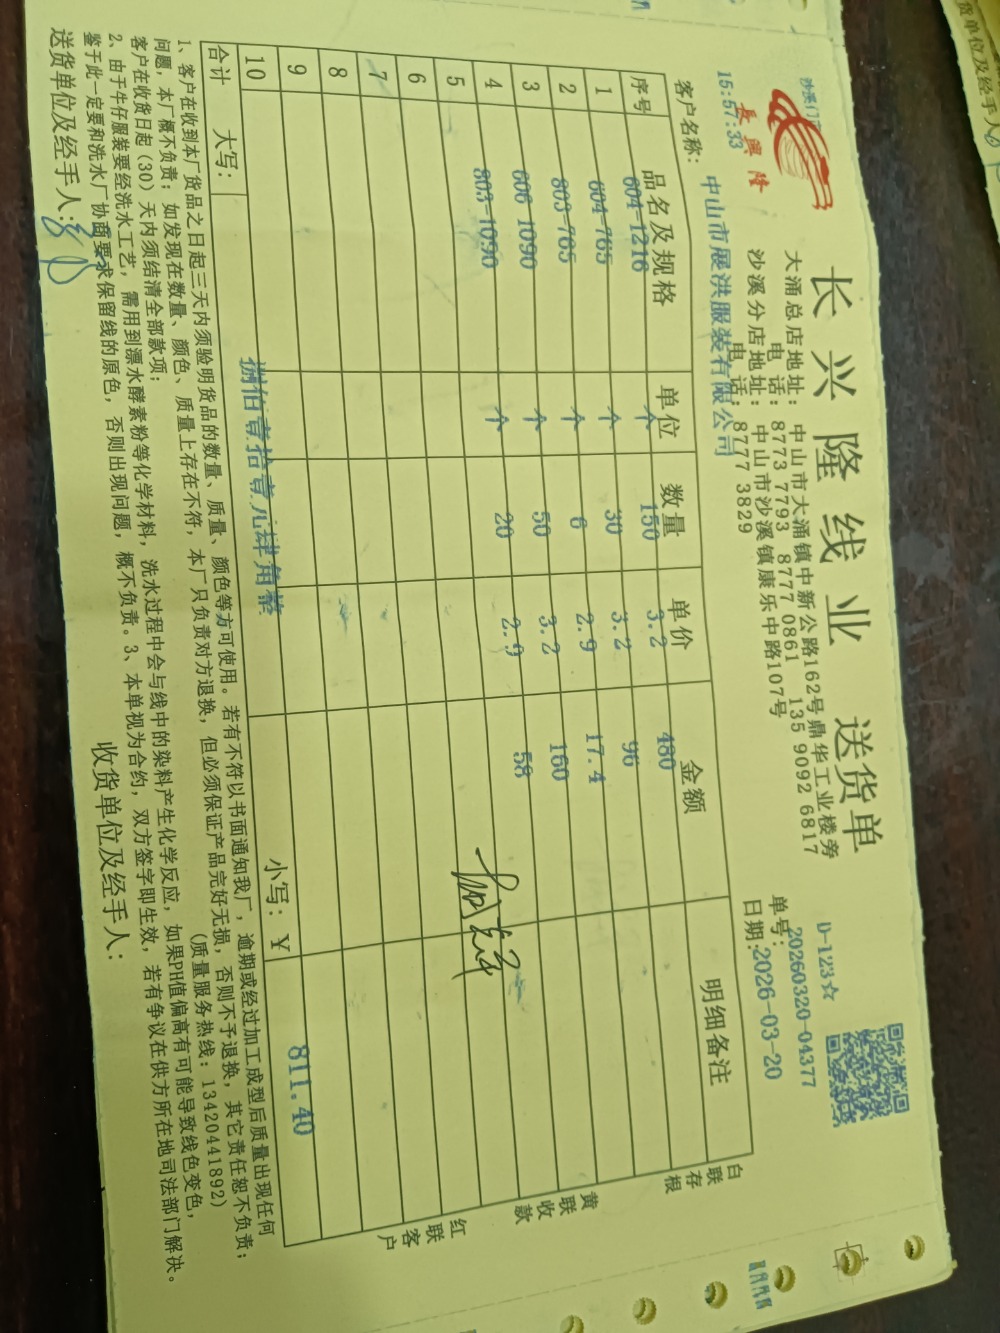 沙溪门
15:57:33
長興隆
长兴隆线业 送货单
大涌总店地址：中山市大涌镇中新公路162号鼎华工业楼旁
电话：8773 7793 8777 0861 135 9092 6817
沙溪分店地址：中山市沙溪镇康乐中路107号
电话：8777 3829
D-123☆
单号：20260320-04377
日期：2026-03-20
客户名称：中山市展洪服装有限公司
序号 品名及规格 单位 数量 单价 金额 明细备注
1 604-1216 个 150 3.2 480
2 604-765 个 30 3.2 96
3 803-765 个 6 2.9 17.4
4 606-1090 个 50 3.2 160
5 803-1090 个 20 2.9 58
6
7
8
9
10
合计 大写：捌佰壹拾壹元肆角整 小写：¥ 811.40
白联存根
黄联收款
红联客户
1、客户在收到本厂货品之日起三天内须验明货品的数量、质量、颜色等方可使用。若有不符以书面通知我厂，逾期或经过加工成型后质量出现任何
问题，本厂概不负责；如发现在数量、颜色、质量上存在不符，本厂只负责对方退换，但必须保证产品完好无损，否则不予退换，其它责任恕不负责；
客户在收货日起(30)天内须结清全部款项； (质量服务热线：13420441892)
2、由于牛仔服装要经洗水工艺，需用到漂水酵素粉等化学材料，洗水过程中会与线中的染料产生化学反应，如果PH值偏高有可能导致线色变色，
鉴于此一定要和洗水厂协商要求保留线的原色，否则出现问题，概不负责。3、本单视为合约，双方签字即生效，若有争议在供方所在地司法部门解决。
送货单位及经手人： 收货单位及经手人：
货单位及经手人